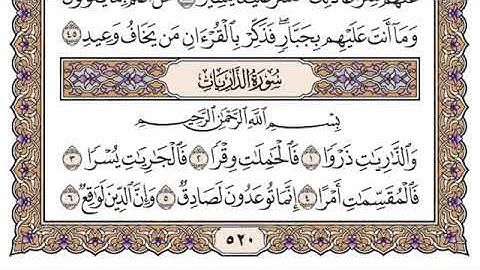 وَمَآ أَنتَ عَلَيْهِم بِجَبَّارٍۖ فَذَكِّرْ بِٱلْقُرْءَانِ مَن يَخَافُ وَعِيدِ ٤٥
سُورَةُ الذَّارِيَاتِ
بِسْمِ ٱللَّهِ ٱلرَّحْمَٰنِ ٱلرَّحِيمِ
وَٱلذَّٰرِيَٰتِ ذَرْوًا ١ فَٱلْحَٰمِلَٰتِ وِقْرًا ٢ فَٱلْجَٰرِيَٰتِ يُسْرًا ٣
فَٱلْمُقَسِّمَٰتِ أَمْرًا ٤ إِنَّمَا تُوعَدُونَ لَصَادِقٌ ٥ وَإِنَّ ٱلدِّينَ لَوَٰقِعٌ ٦
٥٢٠